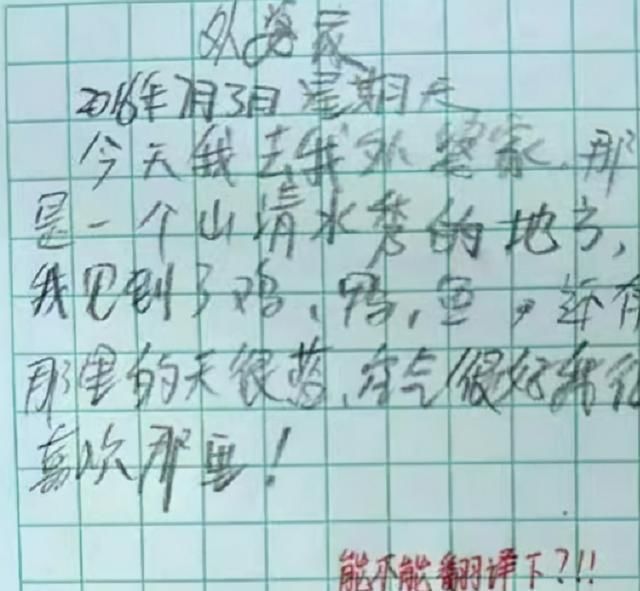 外婆家
2016年7月3日 星期天
今天我去我外婆家.那
是一个山清水秀的地方,
我见到了鸡、鸭,鱼,还有
那里的天很蓝.空气很好我很
喜欢那里!
能不能翻译下?!!